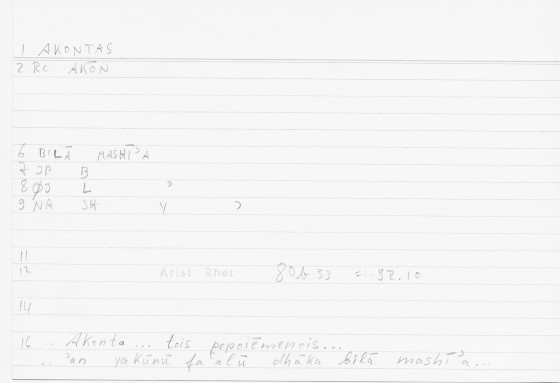 1 AKONTAS
2 RC AKŌN
6 BILĀ MASHĪʾA
7 JP B
8 ØJ L ʾ
9 NA SH Y ʾ
11
12 Arist Rhet 80b33 = 92.10
14
16 .. Akonta... tois pepoiēmenois...
.. ʾan yakūnū faʿalū dhāka bilā mashīʾa...